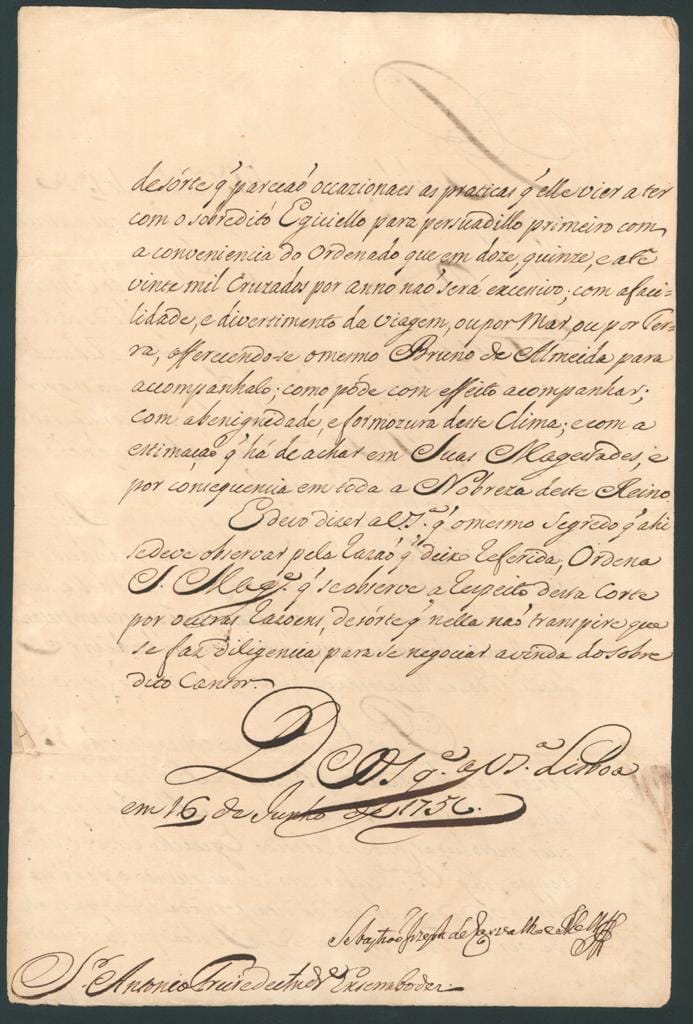 desórte q̃ pareçaõ occazionaes as praticas q̃ elle vier a ter
com o sobredito Egiciello para persuadillo primeiro com
a conveniencia do Ordenado que em doze, quinze, e até
vinte mil Cruzados por anno naõ será excessivo; com a faci-
lidade, e divertimento da viagem, ou por Mar, ou por Ter-
ra, offerecendo-se o mesmo Bruno de Almeida para
accompanhalo; como póde com effeito acompanhar;
com a benignedade, e formozura deste Clima; e com a
estimaçaõ q̃ há de achar em Suas Magestades, e
por consequencia em toda a Nobreza deste Reino.
E devo dizer a V.S.ª q̃ o mesmo segredo q̃ ahi
se deve observar pela razaõ q̃ deixo referida, Ordena
S. Mag.e q̃ se observe a respeito desta Corte
por outras razoens, desórte q̃ nella naõ transpire que
se faz diligencia para se negociar a vinda do sobre
dito Cantor.
Deos g.e a V.S.ª Lisboa
em 16 de Junho de 175
Sebastiaõ Joseph de Carvalho e Mello
S.r Antonio Freire de Encerrabodes